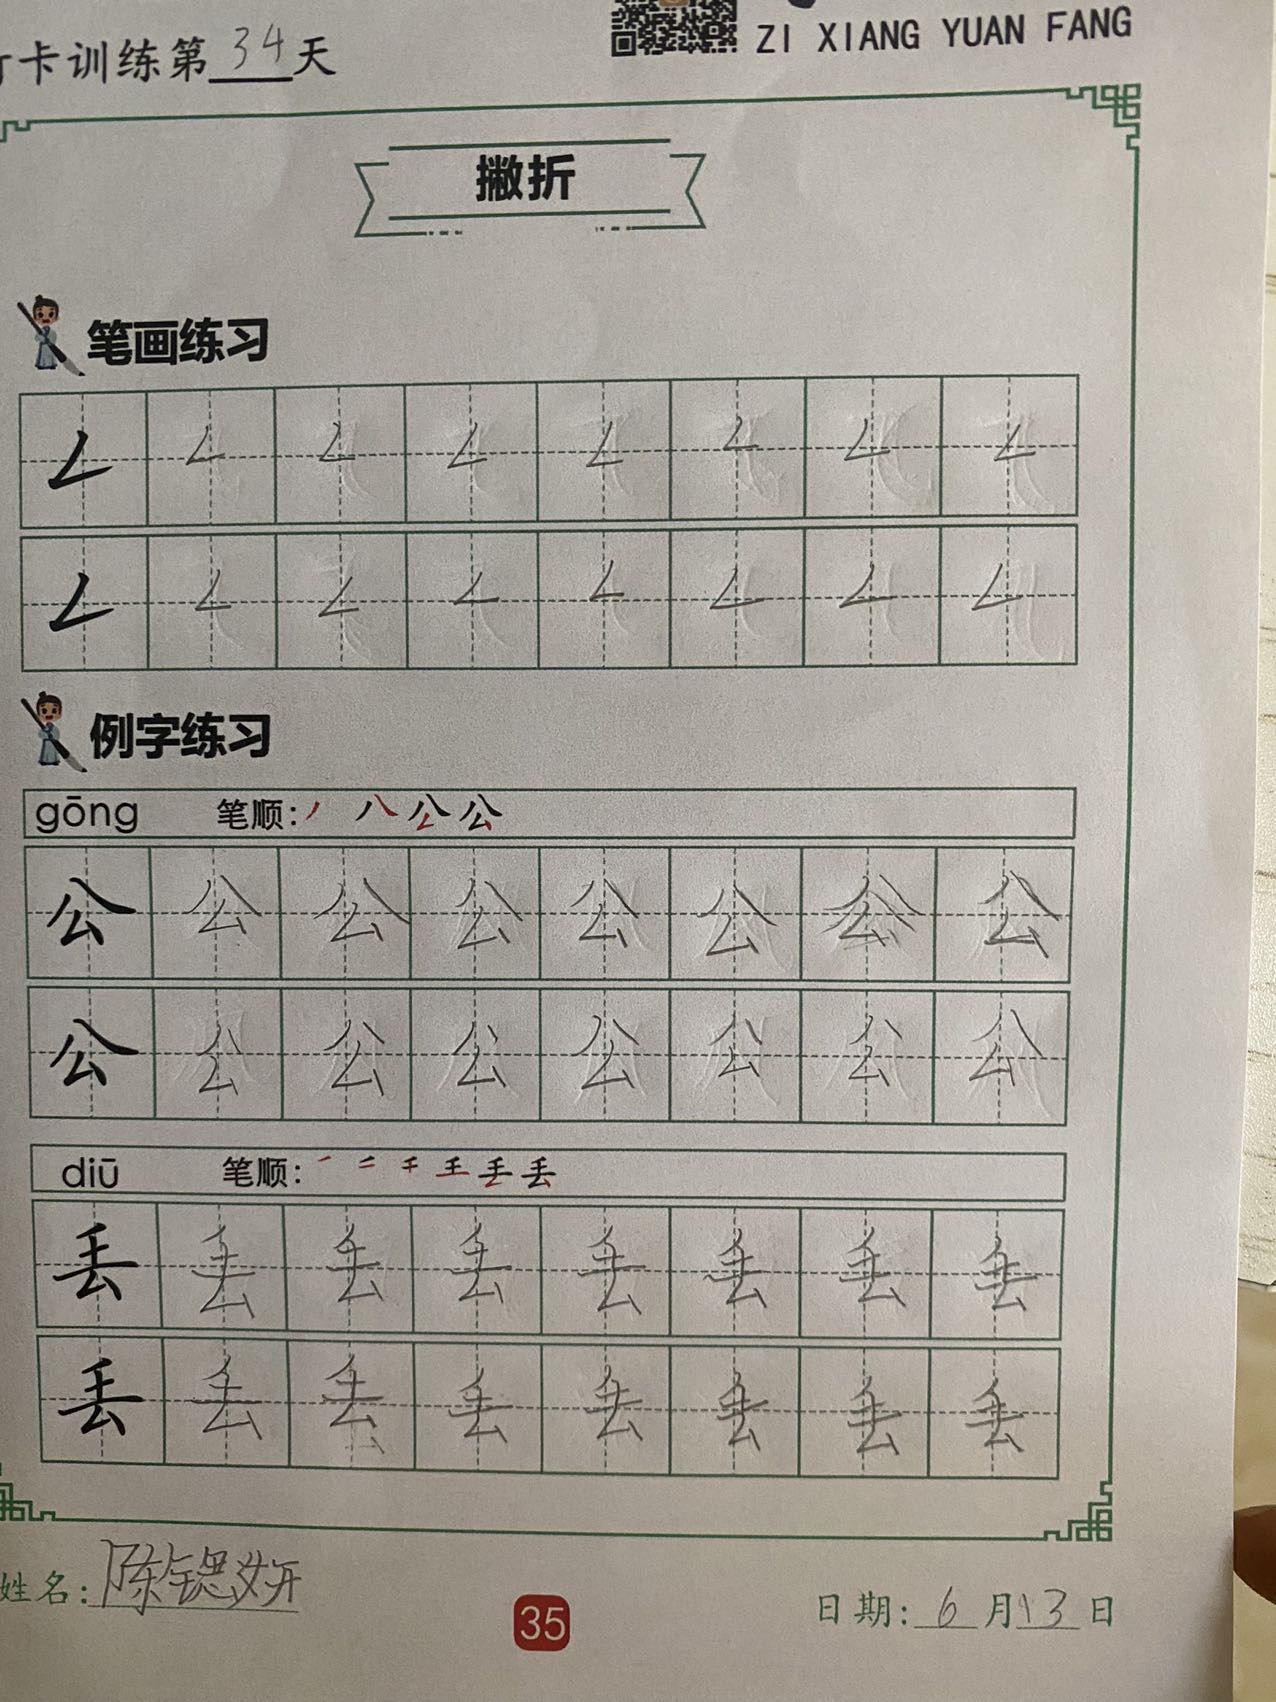 ZI XIANG YUAN FANG
卡训练第34天
撇折
笔画练习
𠃋 𠃋 𠃋 𠃋 𠃋 𠃋 𠃋 𠃋
𠃋 𠃋 𠃋 𠃋 𠃋 𠃋 𠃋 𠃋
例字练习
gōng 笔顺: 丿 八 公 公
公 公 公 公 公 公 公 公
公 公 公 公 公 公 公 公
diū 笔顺:
丢 丢 丢 丢 丢 丢 丢 丢
丢 丢 丢 丢 丢 丢 丢 丢
姓名: 陈锶妍
35
日期: 6月13日